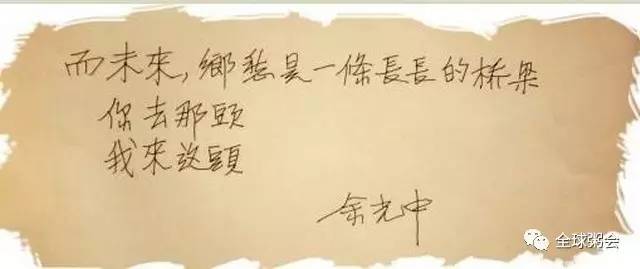 而未來,鄉愁是一條長長的桥梁
你去那頭
我來这頭
余光中
全球粥会